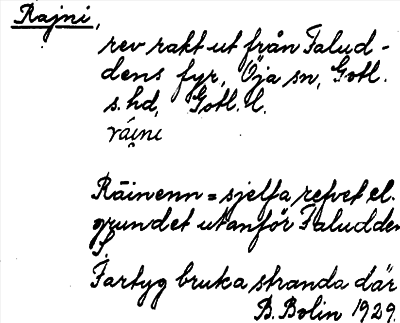 Rajni,
rev rakt ut från Falud-
dens fyr, Öja sn, Gotl.
s. hd, Gotl. l.
ráịni
Räinenn = sjelfa refvet el.
grundet utanför Faludden
Fartyg bruka stranda där
B. Bolin 1929.